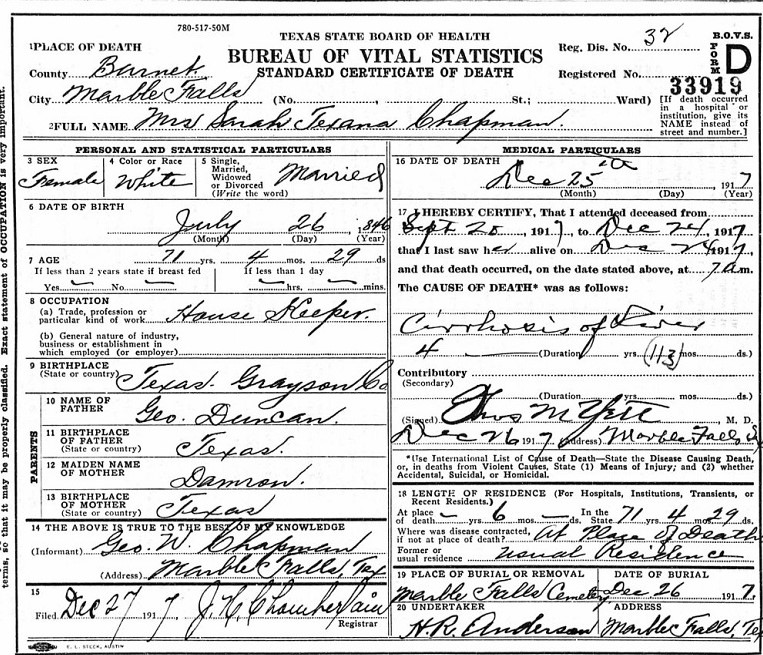 780-517-50M
TEXAS STATE BOARD OF HEALTH
BUREAU OF VITAL STATISTICS
STANDARD CERTIFICATE OF DEATH
Reg. Dis. No. 32
Registered No.
B.O.V.S.
FORM D
33919
[If death occurred in a hospital or institution, give its NAME instead of street and number.]
1 PLACE OF DEATH
County Burnet
City Marble Falls (No. , St.; Ward)
2 FULL NAME Mrs Sarah Texana Chapman.
PERSONAL AND STATISTICAL PARTICULARS
3 SEX Female
4 Color or Race White
5 Single, Married, Widowed or Divorced (Write the word) Married
6 DATE OF BIRTH
July 26 1846
(Month) (Day) (Year)
7 AGE 71 yrs. 4 mos. 29 ds
If less than 2 years state if breast fed If less than 1 day
Yes — No — — hrs. — mins.
8 OCCUPATION
(a) Trade, profession or particular kind of work House Keeper.
(b) General nature of industry, business or establishment in which employed (or employer)
9 BIRTHPLACE (State or country) Texas. Grayson Co
PARENTS
10 NAME OF FATHER Geo. Duncan.
11 BIRTHPLACE OF FATHER (State or country) Texas.
12 MAIDEN NAME OF MOTHER Damron.
13 BIRTHPLACE OF MOTHER (State or country) Texas
14 THE ABOVE IS TRUE TO THE BEST OF MY KNOWLEDGE
(Informant) Geo. W. Chapman
(Address) Marble Falls, Tex
15
Filed Dec 27 1917, J. H. Chamberlain
Registrar
MEDICAL PARTICULARS
16 DATE OF DEATH
Dec 25th 1917
(Month) (Day) (Year)
17 I HEREBY CERTIFY, That I attended deceased from
Sept 20, 1917, to Dec 24, 1917
that I last saw her alive on Dec 24 1917,
and that death occurred, on the date stated above, at 7 a.m.
The CAUSE OF DEATH* was as follows:
Cirrhosis of Liver
4 — (Duration) yrs. (113) mos. ds.)
Contributory
(Secondary)
(Duration) yrs. mos. ds.)
(Signed) Thos M Yett M. D.
Dec 26 1917 (Address) Marble Falls,
*Use International List of Cause of Death—State the Disease Causing Death, or, in deaths from Violent Causes, State (1) Means of Injury; and (2) whether Accidental, Suicidal, or Homicidal.
18 LENGTH OF RESIDENCE (For Hospitals, Institutions, Transients, or Recent Residents.)
At place of death — yrs. 6 mos. — ds. In the State 71 yrs. 4 mos. 29 ds.
Where was disease contracted, if not at place of death? At Place of Death
Former or usual residence Usual Residence
19 PLACE OF BURIAL OR REMOVAL DATE OF BURIAL
Marble Falls Cemetery Dec 26 1917.
20 UNDERTAKER ADDRESS
H. R. Anderson Marble Falls, Tex
E. L. STECK, AUSTIN
terms, so that it may be properly classified. Exact statement of OCCUPATION is very important.